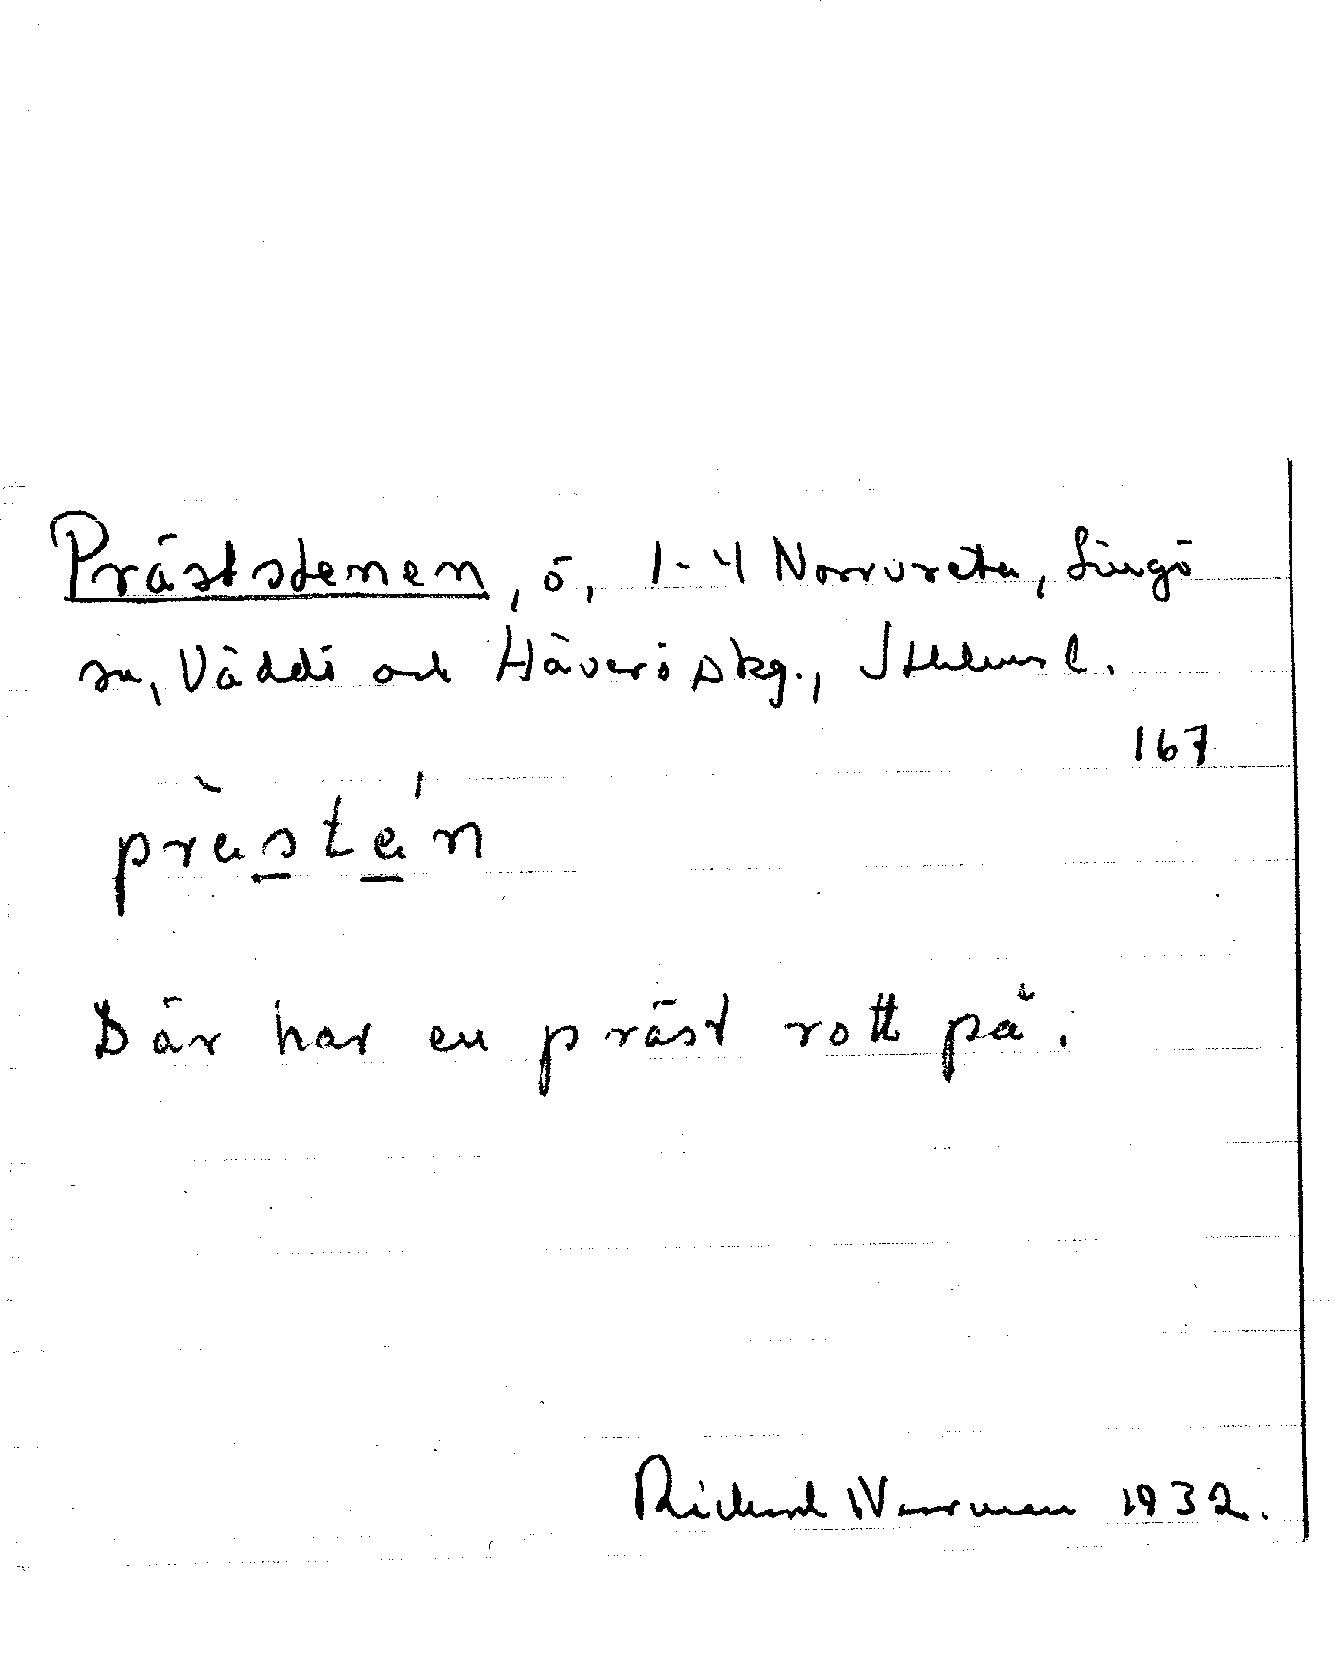 Präststenen, ö, 1-4 Norrvreta, Singö
sn, Väddö och Häverö skg., Sthlms l.
167
prästén
Där har en präst rott på.
Richard Norrman 1932.